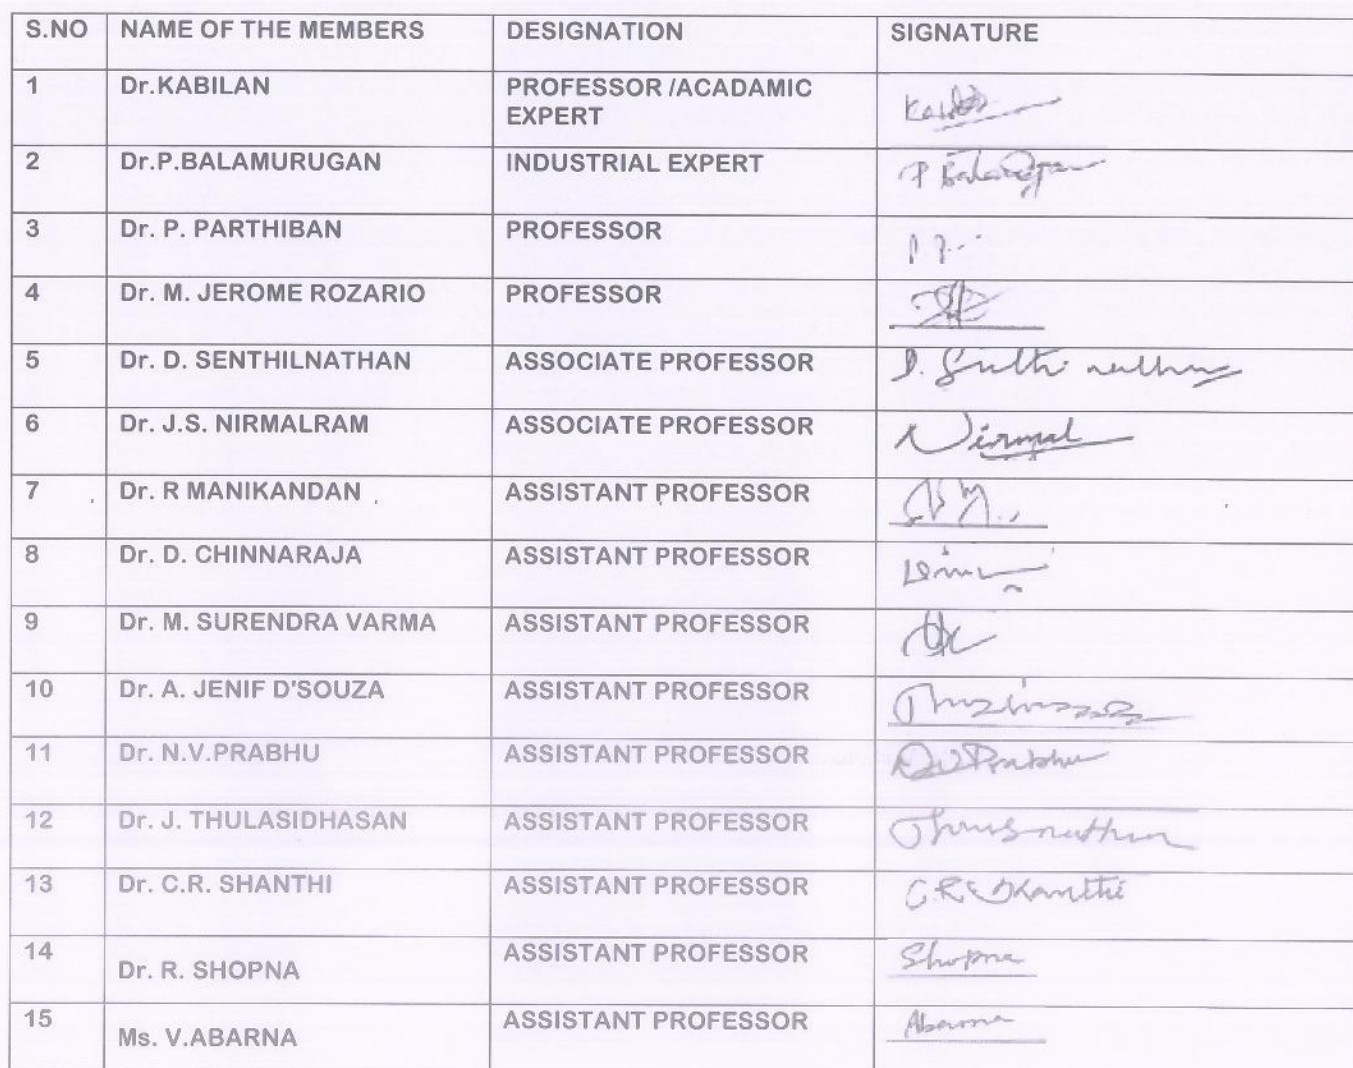 S.NO NAME OF THE MEMBERS DESIGNATION SIGNATURE
1 Dr.KABILAN PROFESSOR /ACADAMIC
EXPERT
2 Dr.P.BALAMURUGAN INDUSTRIAL EXPERT
3 Dr. P. PARTHIBAN PROFESSOR
4 Dr. M. JEROME ROZARIO PROFESSOR
5 Dr. D. SENTHILNATHAN ASSOCIATE PROFESSOR
6 Dr. J.S. NIRMALRAM ASSOCIATE PROFESSOR Nirmal
7 Dr. R MANIKANDAN ASSISTANT PROFESSOR
8 Dr. D. CHINNARAJA ASSISTANT PROFESSOR
9 Dr. M. SURENDRA VARMA ASSISTANT PROFESSOR
10 Dr. A. JENIF D'SOUZA ASSISTANT PROFESSOR
11 Dr. N.V.PRABHU ASSISTANT PROFESSOR NV Prabhu
12 Dr. J. THULASIDHASAN ASSISTANT PROFESSOR
13 Dr. C.R. SHANTHI ASSISTANT PROFESSOR
14 Dr. R. SHOPNA ASSISTANT PROFESSOR Shopna
15 Ms. V.ABARNA ASSISTANT PROFESSOR Abarna